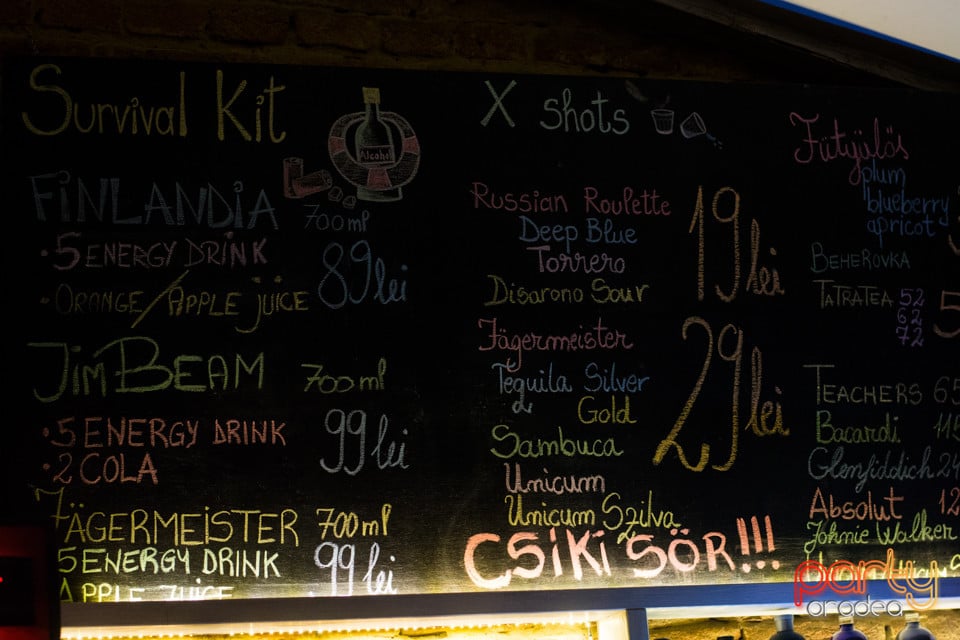 Survival Kit
Alcohol
FINLANDIA 700ml
• 5 ENERGY DRINK 89 lei
• ORANGE/APPLE juice
JIM BEAM 700ml
• 5 ENERGY DRINK 99 lei
• 2 COLA
JÄGERMEISTER 700ml
5 ENERGY DRINK 99 lei
APPLE JUICE
X shots
Russian Roulette 19 lei
Deep Blue
Torrero
Disarono Sour
Jägermeister 29 lei
Tequila Silver
Gold
Sambuca
Unicum
Unicum Szilva
CSIKI SÖR!!!
Fütyülős
plum
blueberry
apricot
BEHEROVKA
TATRATEA 52
62
72
TEACHERS
Bacardi
Glenfiddich
Absolut
Johnie Walker
party
oradea